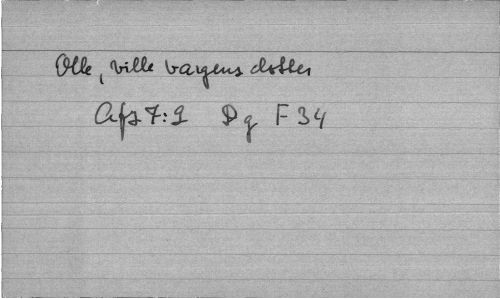 Olle, ville vargens dotter
Afs 7:1 Dg F 34